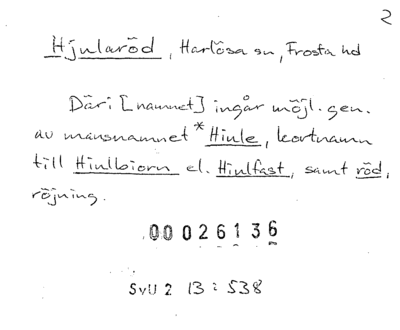 2
Hjularöd, Harlösa sn, Frosta hd
Däri [namnet] ingår möjl. gen.
av mansnamnet *Hiule, kortnamn
till Hiulbiorn el. Hiulfast, samt röd,
röjning.
00026136
SvU 2 13:538